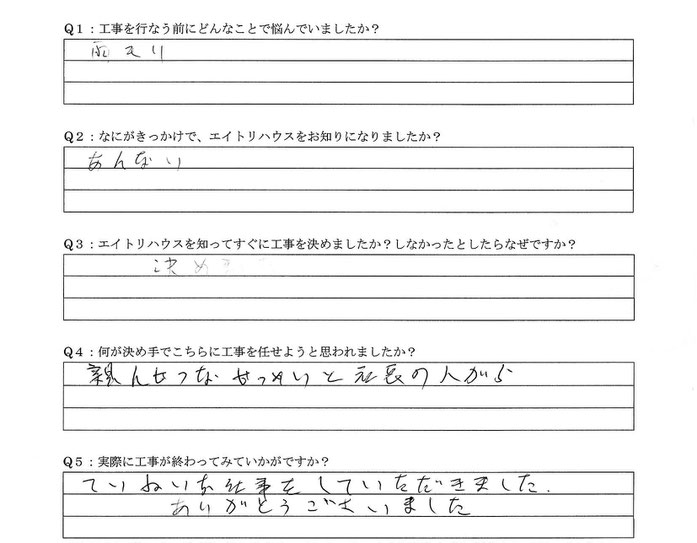 Q1：工事を行なう前にどんなことで悩んでいましたか？
雨もり
Q2：なにがきっかけで、エイトリハウスをお知りになりましたか？
あんない
Q3：エイトリハウスを知ってすぐに工事を決めましたか？しなかったとしたらなぜですか？
決め
Q4：何が決め手でこちらに工事を任せようと思われましたか？
親んせつなせつめいと社長の人がら
Q5：実際に工事が終わってみていかがですか？
ていねいな仕事をしていただきました.
ありがとうございました